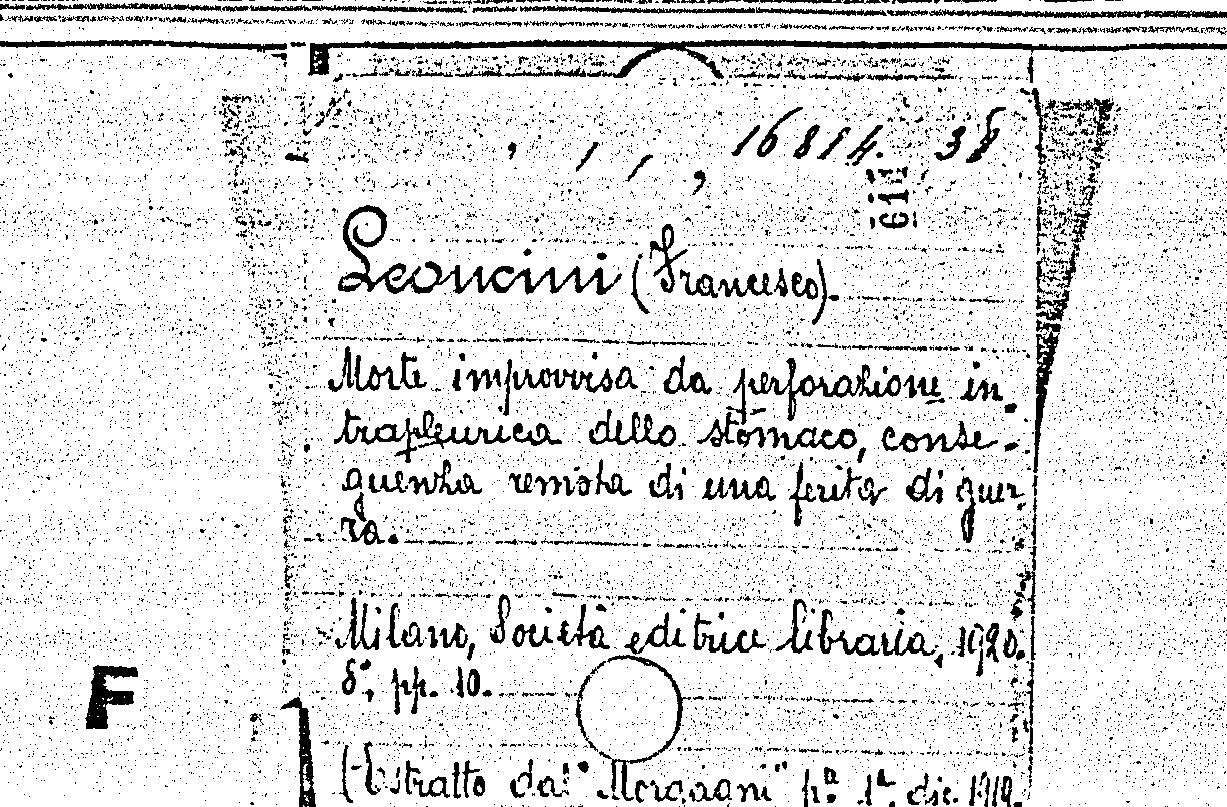 , , , , 16814. 38
Leoncini (Francesco).
Morte improvvisa da perforazione in-
trapleurica dello stomaco, conse-
guenza remota di una ferita di guer-
ra.
Milano, Società editrice libraria, 1920.
8°, pp. 10.
F
(Estratto dal "Morgagni" p.ª 1ª, dic. 1919.